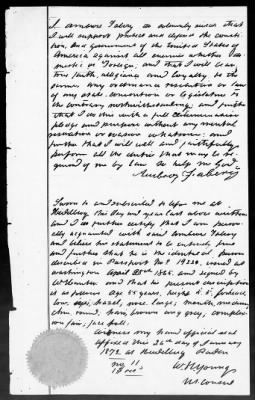 I Ambrose Faberg do solemnly swear that
I will support protect and defend the constitu-
tion, and government of the United States of
America against all enemies whether do-
mestic or foreign, and that I will bear
true faith, allegiance and loyalty to the
same, any ordinance resolution or law
of any state, convention or legislature to
the contrary notwithstanding; and further
that I do this with a full determination
pledge and purpose without any mental
reservation or evasion whatsoever: and
further that I will well and faithfully
perform all the duties that may be re-
quired of me by law. So help me God.
Sworn to and subscribed to before me at
Heidelberg this day and year last above written
and I do further certify that I am person-
ally acquainted with said Ambrose
and believe his statement to be entirely true
and further that he is the identical person
described in Passport No 19230, issued at
Washington April 1865, and signed by
and that his personal description
is as follows Age 55 years, height
eyes, hazel, nose, large; mouth, medium
chin, round, hair, brown and grey, complex-
ion fair; face full.
Witness my hand official seal at
office this 26th day of January
1872 at Heidelberg Baden
no 11
US Consul